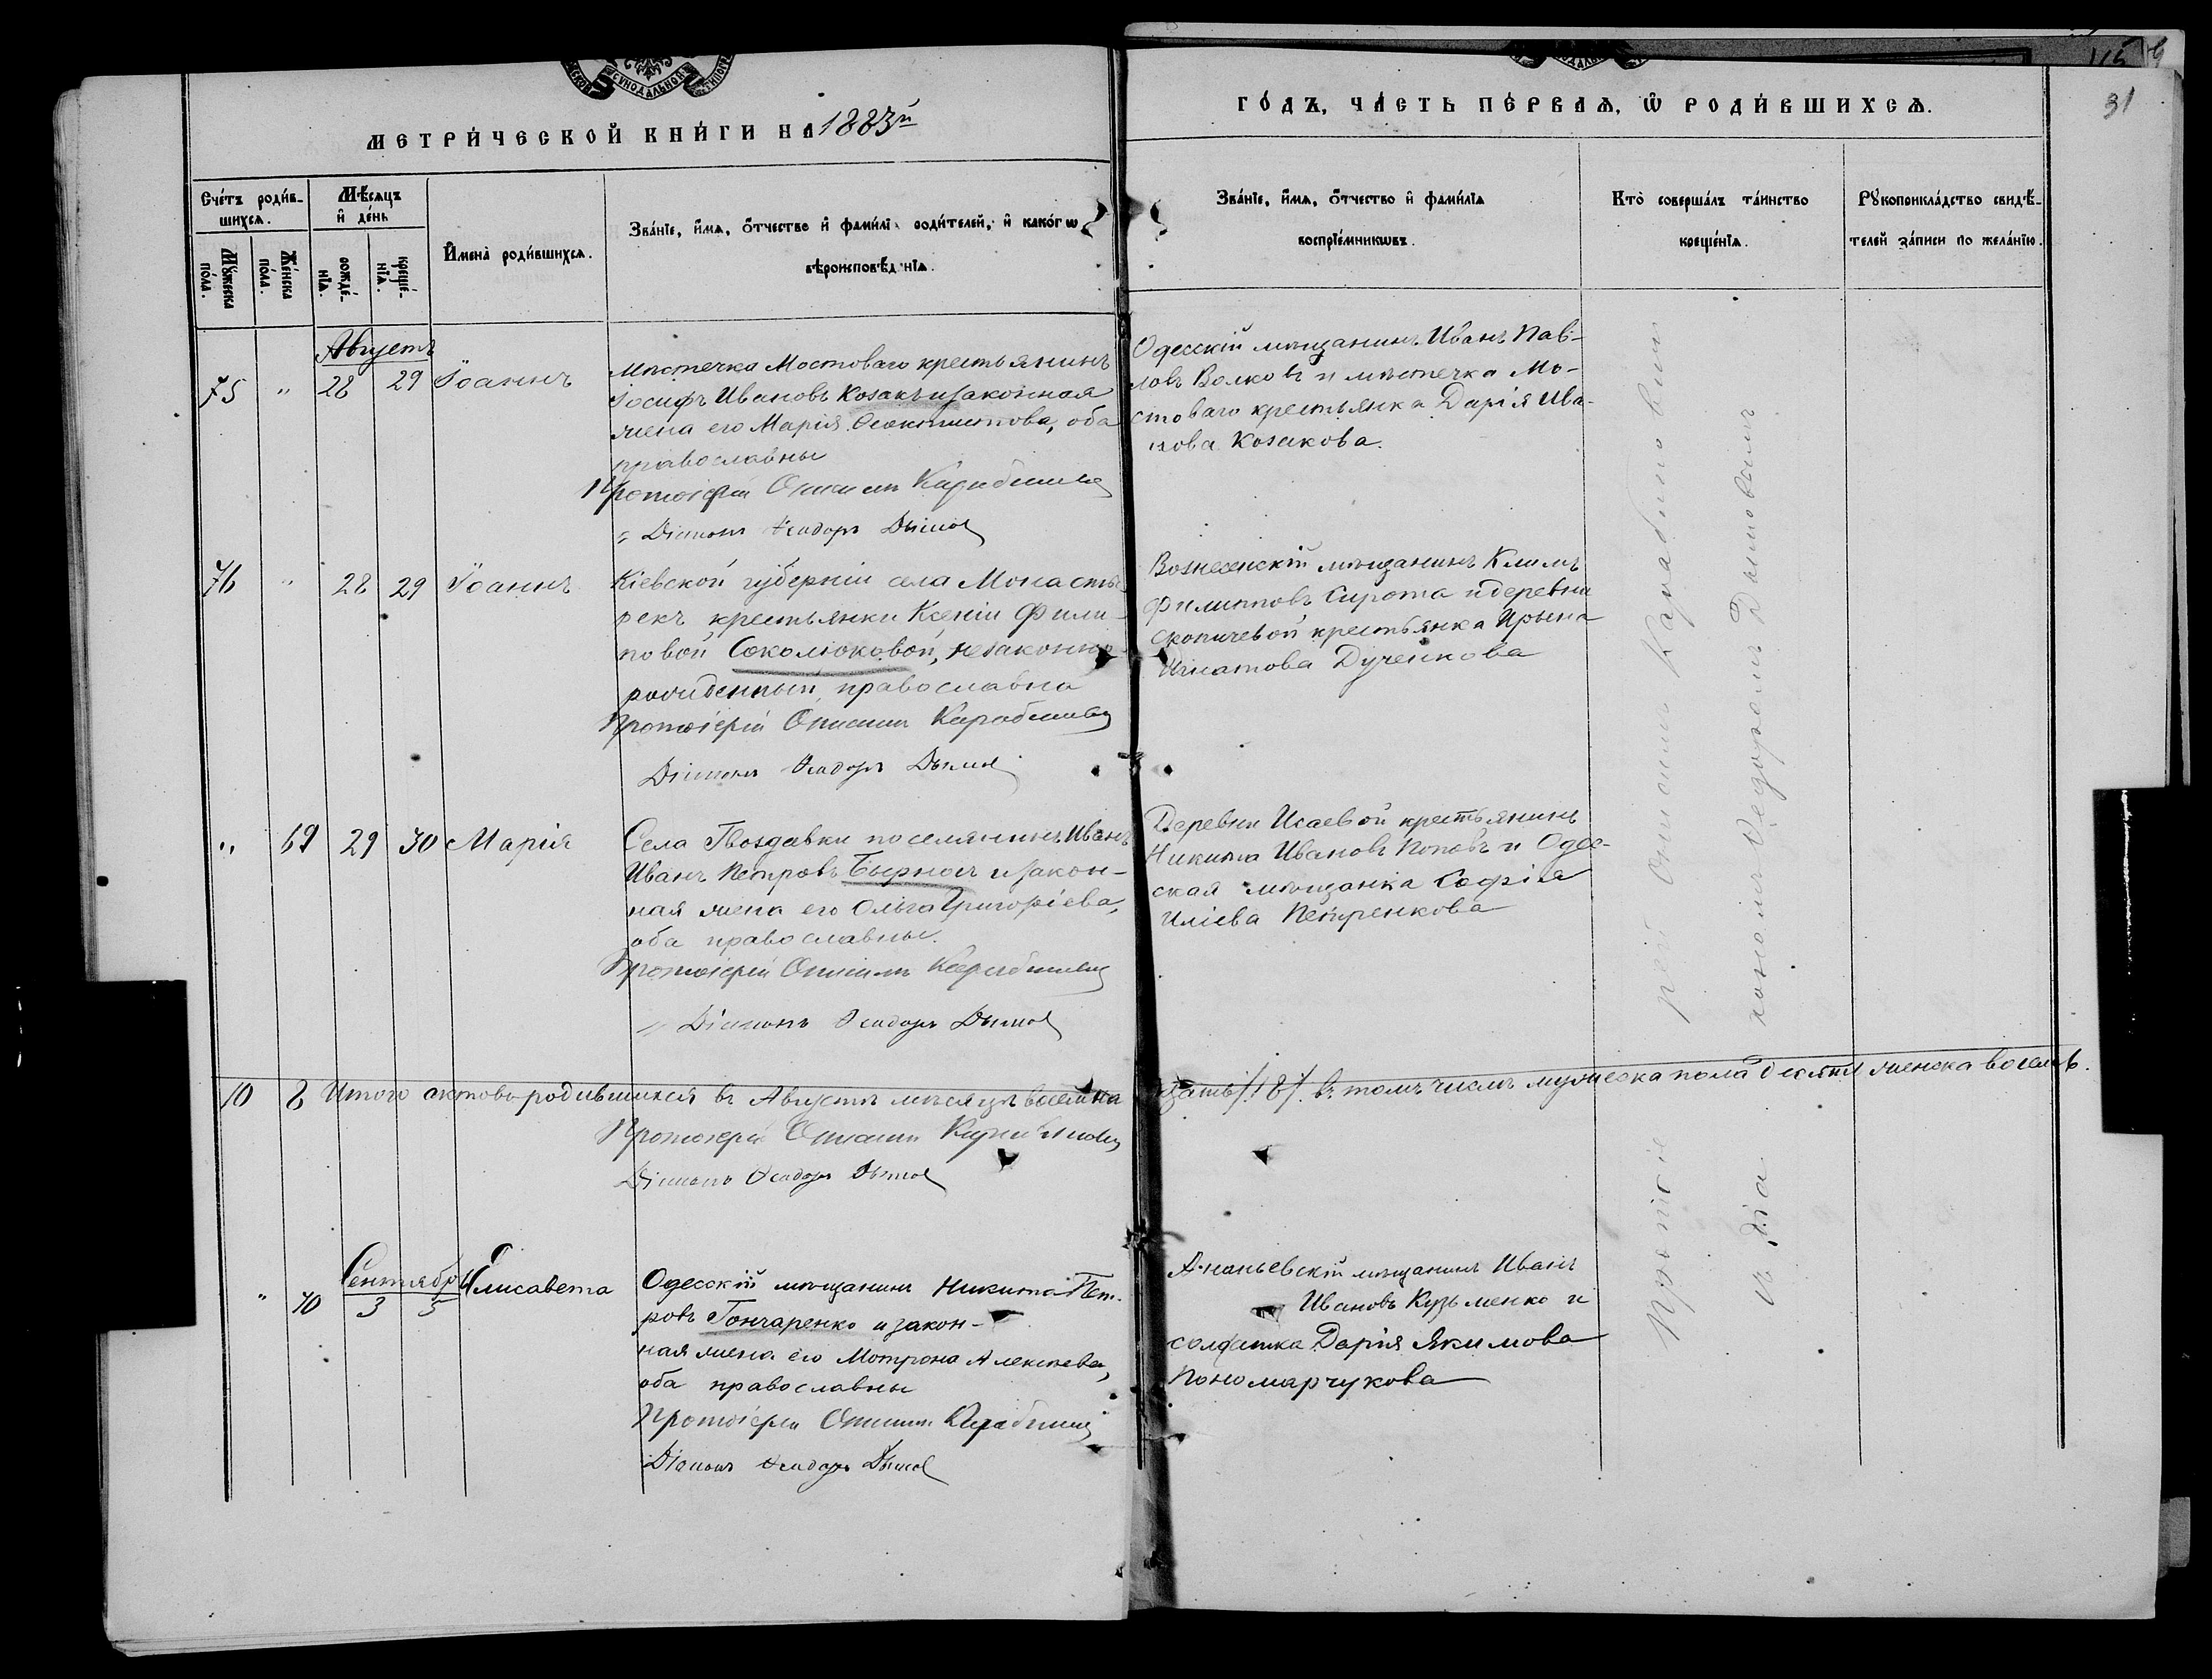 МЕТРИ́ЧЕСКОЙ КНИ́ГИ НА 1883й
ГО́ДЪ, ЧА́СТЬ ПЕ́РВАѦ, Ѡ҆ РОДИ́ВШИХСѦ.
31
Сче́тъ роди́в-
шихсѧ.
Мꙋ́жеска по́ла.
Же́нска по́ла.
Мѣ́сѧцъ
и҆ де́нь
рожде́-
нїѧ.
креще́-
нїѧ.
И҆мена̀ роди́вшихсѧ.
Зва́нїе, и҆́мѧ, ѻ҆́тчество и҆ фами́лїѧ роди́телей, и҆ како́гѡ
вѣроисповѣ́данїѧ.
Зва́нїе, и҆́мѧ, ѻ҆́тчество и҆ фами́лїѧ
воспрїе́мникѡвъ.
Кто̀ соверша́лъ та́инство
креще́нїѧ.
Рꙋкоприкла́дство свидѣ́-
телей за́писи по жела́нїю.
Августъ
75 " 28 29 Іоаннъ
Мѣстечка Мостоваго крестьянинъ
Іосифъ Ивановъ Козакъ и законная
жена его Марія Феоктистова, оба
православны
Протоіерей Онисимъ
Діаконъ Ѳеодоръ Дымов
Одесскій мѣщанинъ Иванъ Пав-
ловъ Волковъ и мѣстечка Мо-
стоваго крестьянка Дарія Ива-
нова Козакова.
76 " 28 29 Іоаннъ
Кіевской губерніи села Монасты-
рекъ крестьянки Ксеніи Фили-
повой Соколюковой, незаконно-
рожденный, православна
Протоіерей Онисимъ
Діаконъ Ѳеодоръ Дымов
Вознесенскій мѣщанинъ Климъ
Филипповъ Сирота и деревни
Скопичевой крестьянка Ирына
Игнатова Дученкова
" 69 29 30 Марія
Села Гвоздавки поселянинъ Иванъ
Иванъ Петровъ и закон-
ная жена его Ольга Григоріева,
оба православны.
Протоіерей Онисимъ
Діаконъ Ѳеодоръ Дымов
Деревни Исаевой крестьянинъ
Никита Ивановъ Поповъ и Одес-
ская мѣщанка Софія
Иліева Петренкова
10 8 Итого актовъ родившихся въ Августѣ мѣсяцѣ восемна
дцать /18/ въ томъ числѣ мужеска пола десять женска восемь.
Протоіерей Онисимъ
Діаконъ Ѳеодоръ Дымов
Сентябрь
" 70 3 5 Елисавета
Одесскій мѣщанинъ Никита Пет-
ровъ Гончаренко и закон-
ная жена его Мотрона Алексѣева,
оба православны
Протоіерей Онисимъ
Діаконъ Ѳеодоръ Дымов
Ананьевскій мѣщанинъ Иванъ
Ивановъ Кузьменко и
солдатка Дарія Якимова
Пономарчукова
Протоіерей Онисимъ
и діакономъ Ѳедоромъ Дымовымъ